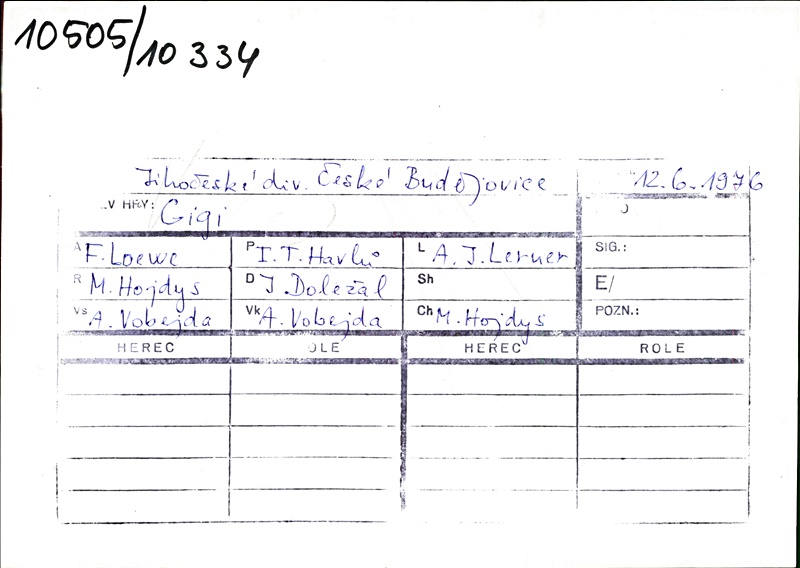 10505/10 334
Jihočeské div. České Budějovice 12.6.1976
.V HRY: Gigi
A F. Loewe P I. T. Havlů L A. J. Lerner SIG.:
R M. Hojdys D J. Doležal Sh E/
Vs A. Vobejda Vk A. Vobejda Ch M. Hojdys POZN.:
HEREC OLE HEREC ROLE